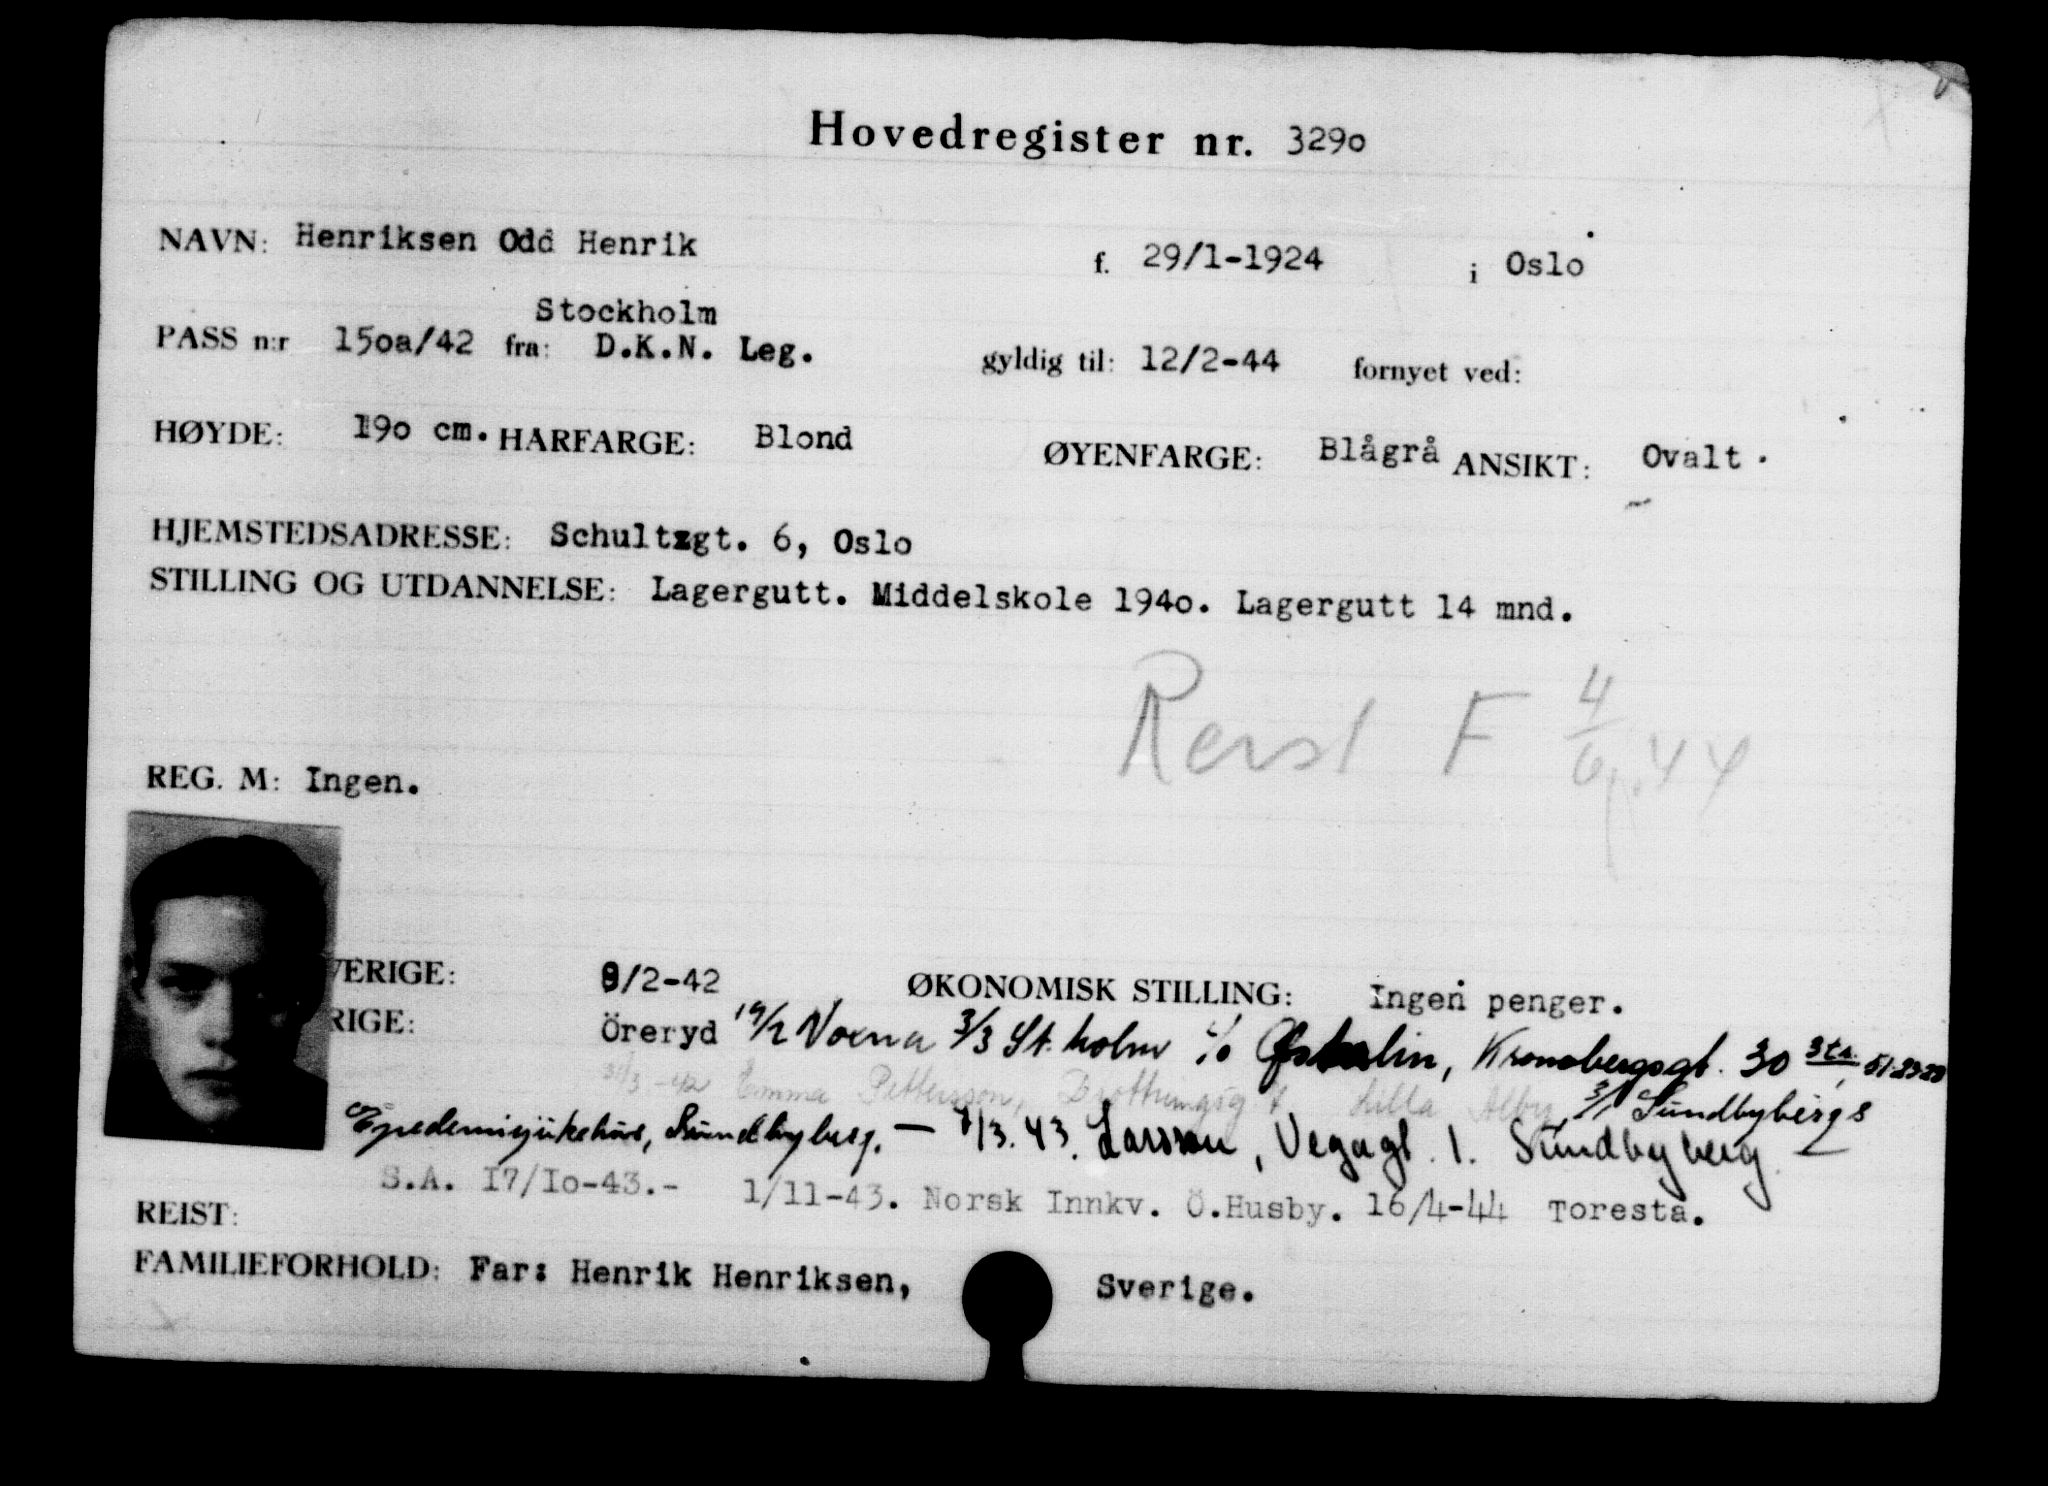 Hovedregister nr. 3290
NAVN: Henriksen Odd Henrik f. 29/1-1924 i Oslo
Stockholm
PASS n:r 150a/42 fra: D.K.N. Leg. gyldig til: 12/2-44 fornyet ved:
HØYDE: 190 cm. HARFARGE: Blond ØYENFARGE: Blågrå ANSIKT: Ovalt.
HJEMSTEDSADRESSE: Schultzgt. 6, Oslo
STILLING OG UTDANNELSE: Lagergutt. Middelskole 1940. Lagergutt 14 mnd.
Reist F 4/6.44
REG. M: Ingen.
VERIGE: 8/2-42 ØKONOMISK STILLING: Ingen penger.
RIGE: Öreryd 19/2 Voxna 3/3 St.holm c/o Kronobergsgt. 30 3 tr.
Emma Pettersson, Lilla Alby, 3/1 Sundbybergs
Epedemisjukehus, Sundbyberg. — 1/3.43. Larsson, Vegagt. 1. Sundbyberg. —
S.A. 17/10-43.- 1/11-43. Norsk Innkv. Ö.Husby. 16/4-44 Toresta.
REIST:
FAMILIEFORHOLD: Far: Henrik Henriksen, Sverige.